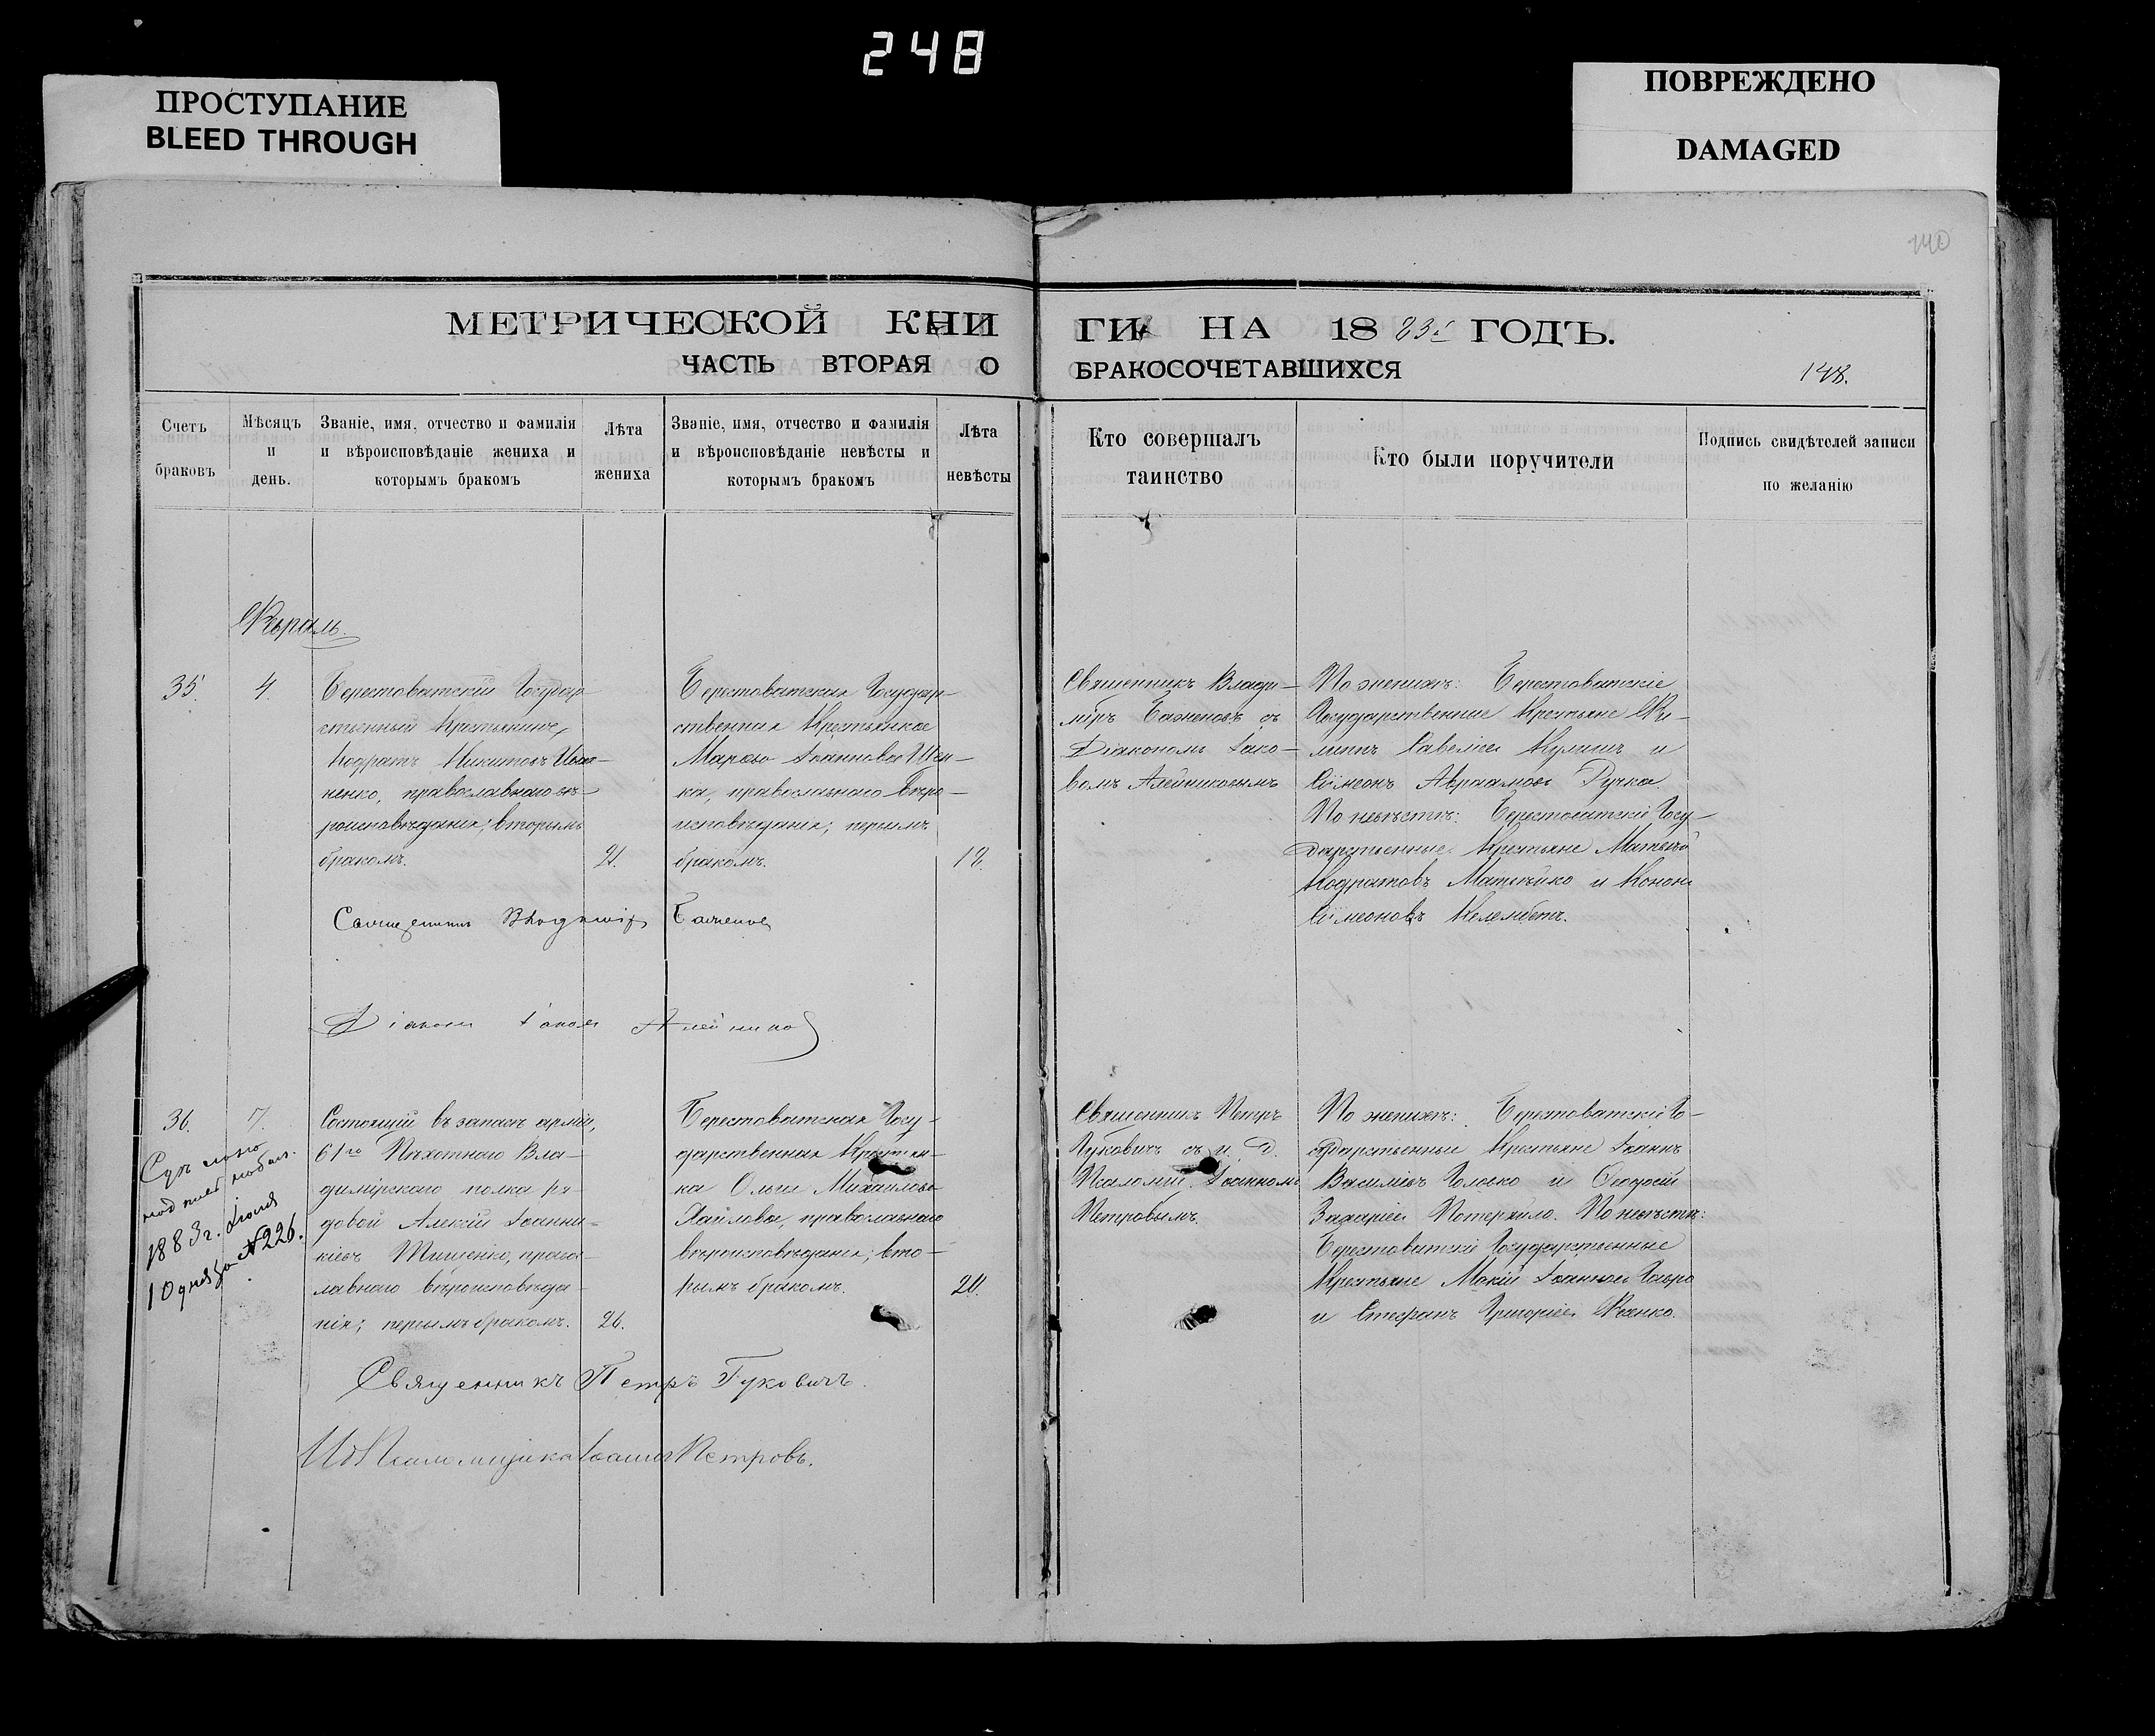 248
ПРОСТУПАНИЕ
BLEED THROUGH
ПОВРЕЖДЕНО
DAMAGED
140
МЕТРИЧЕСКОЙ КНИ
ГИ НА 1883 ГОДЪ.
ЧАСТЬ ВТОРАЯ О
БРАКОСОЧЕТАВШИХСЯ
148.
Счетъ
браковъ
Мѣсяцъ
и
день.
Званіе, имя, отчество и фамилія
и вѣроисповѣданіе жениха и
которымъ бракомъ
Лѣта
жениха
Званіе, имя, отчество и фамилія
и вѣроисповѣданіе невѣсты и
которымъ бракомъ
Лѣта
невѣсты
Кто совершалъ
таинство
Кто были поручители
Подпись свидѣтелей записи
по желанію
35.
4.
Берестоватскій Государ
ственный Крестьянинъ
Кодратъ Никитовъ
ненко, православнаго вѣ-
роисповѣданія; вторымъ
бракомъ.
21.
Берестоватская Государ-
ственная Крестьянка
Марѳа Іоаннова
ка, православнаго вѣро-
исповѣданія; первымъ
бракомъ.
Священникъ Влади-
міръ Баженовъ съ
Діакономъ Іако-
вомъ Алейниковымъ
По женихѣ: Берестоватскіе
Государственные Крестьяне Фи-
липпъ Савеліевъ Кулишъ и
Сѵмеонъ Авраамовъ Ручка.
По невѣстѣ: Берестоватскіе Госу-
дарственные Крестьяне Матвѣй
Кодратовъ Матвѣйко и Кононъ
Сѵмеоновъ Келембетъ.
Священникъ Владиміръ Баженовъ
Діаконъ Іаковъ Алейниковъ
36.
7.
1883 г. Іюня
10 дня за №226.
Состоящій въ запасѣ арміи,
61го Пѣхотнаго Вла-
димірскаго полка ря-
довой Алексій Іоанни-
кіевъ Тищенко, правос-
лавнаго вѣроисповѣда-
нія; первымъ бракомъ.
26.
Берестоватская Госу-
дарственная Крестьян-
ка Ольга Михайлова
православнаго
вѣроисповѣданія; вто-
рымъ бракомъ.
20.
Священникъ Петръ
Гуковичъ съ и. д.
Псаломщ. Іоанномъ
Петровымъ.
По женихѣ: Берестоватскіе Го-
дарственные Крестьяне Іоаннъ
Василіевъ и Ѳеодосій
Захаріевъ Потеряйло. По невѣстѣ:
Берестоватскіе Государственные
Крестьяне Мокій Іоанновъ
и Стефанъ Григоріевъ
Священникъ Петръ Гуковичъ.
Ид Псаломщика Іоаннъ Петровъ.